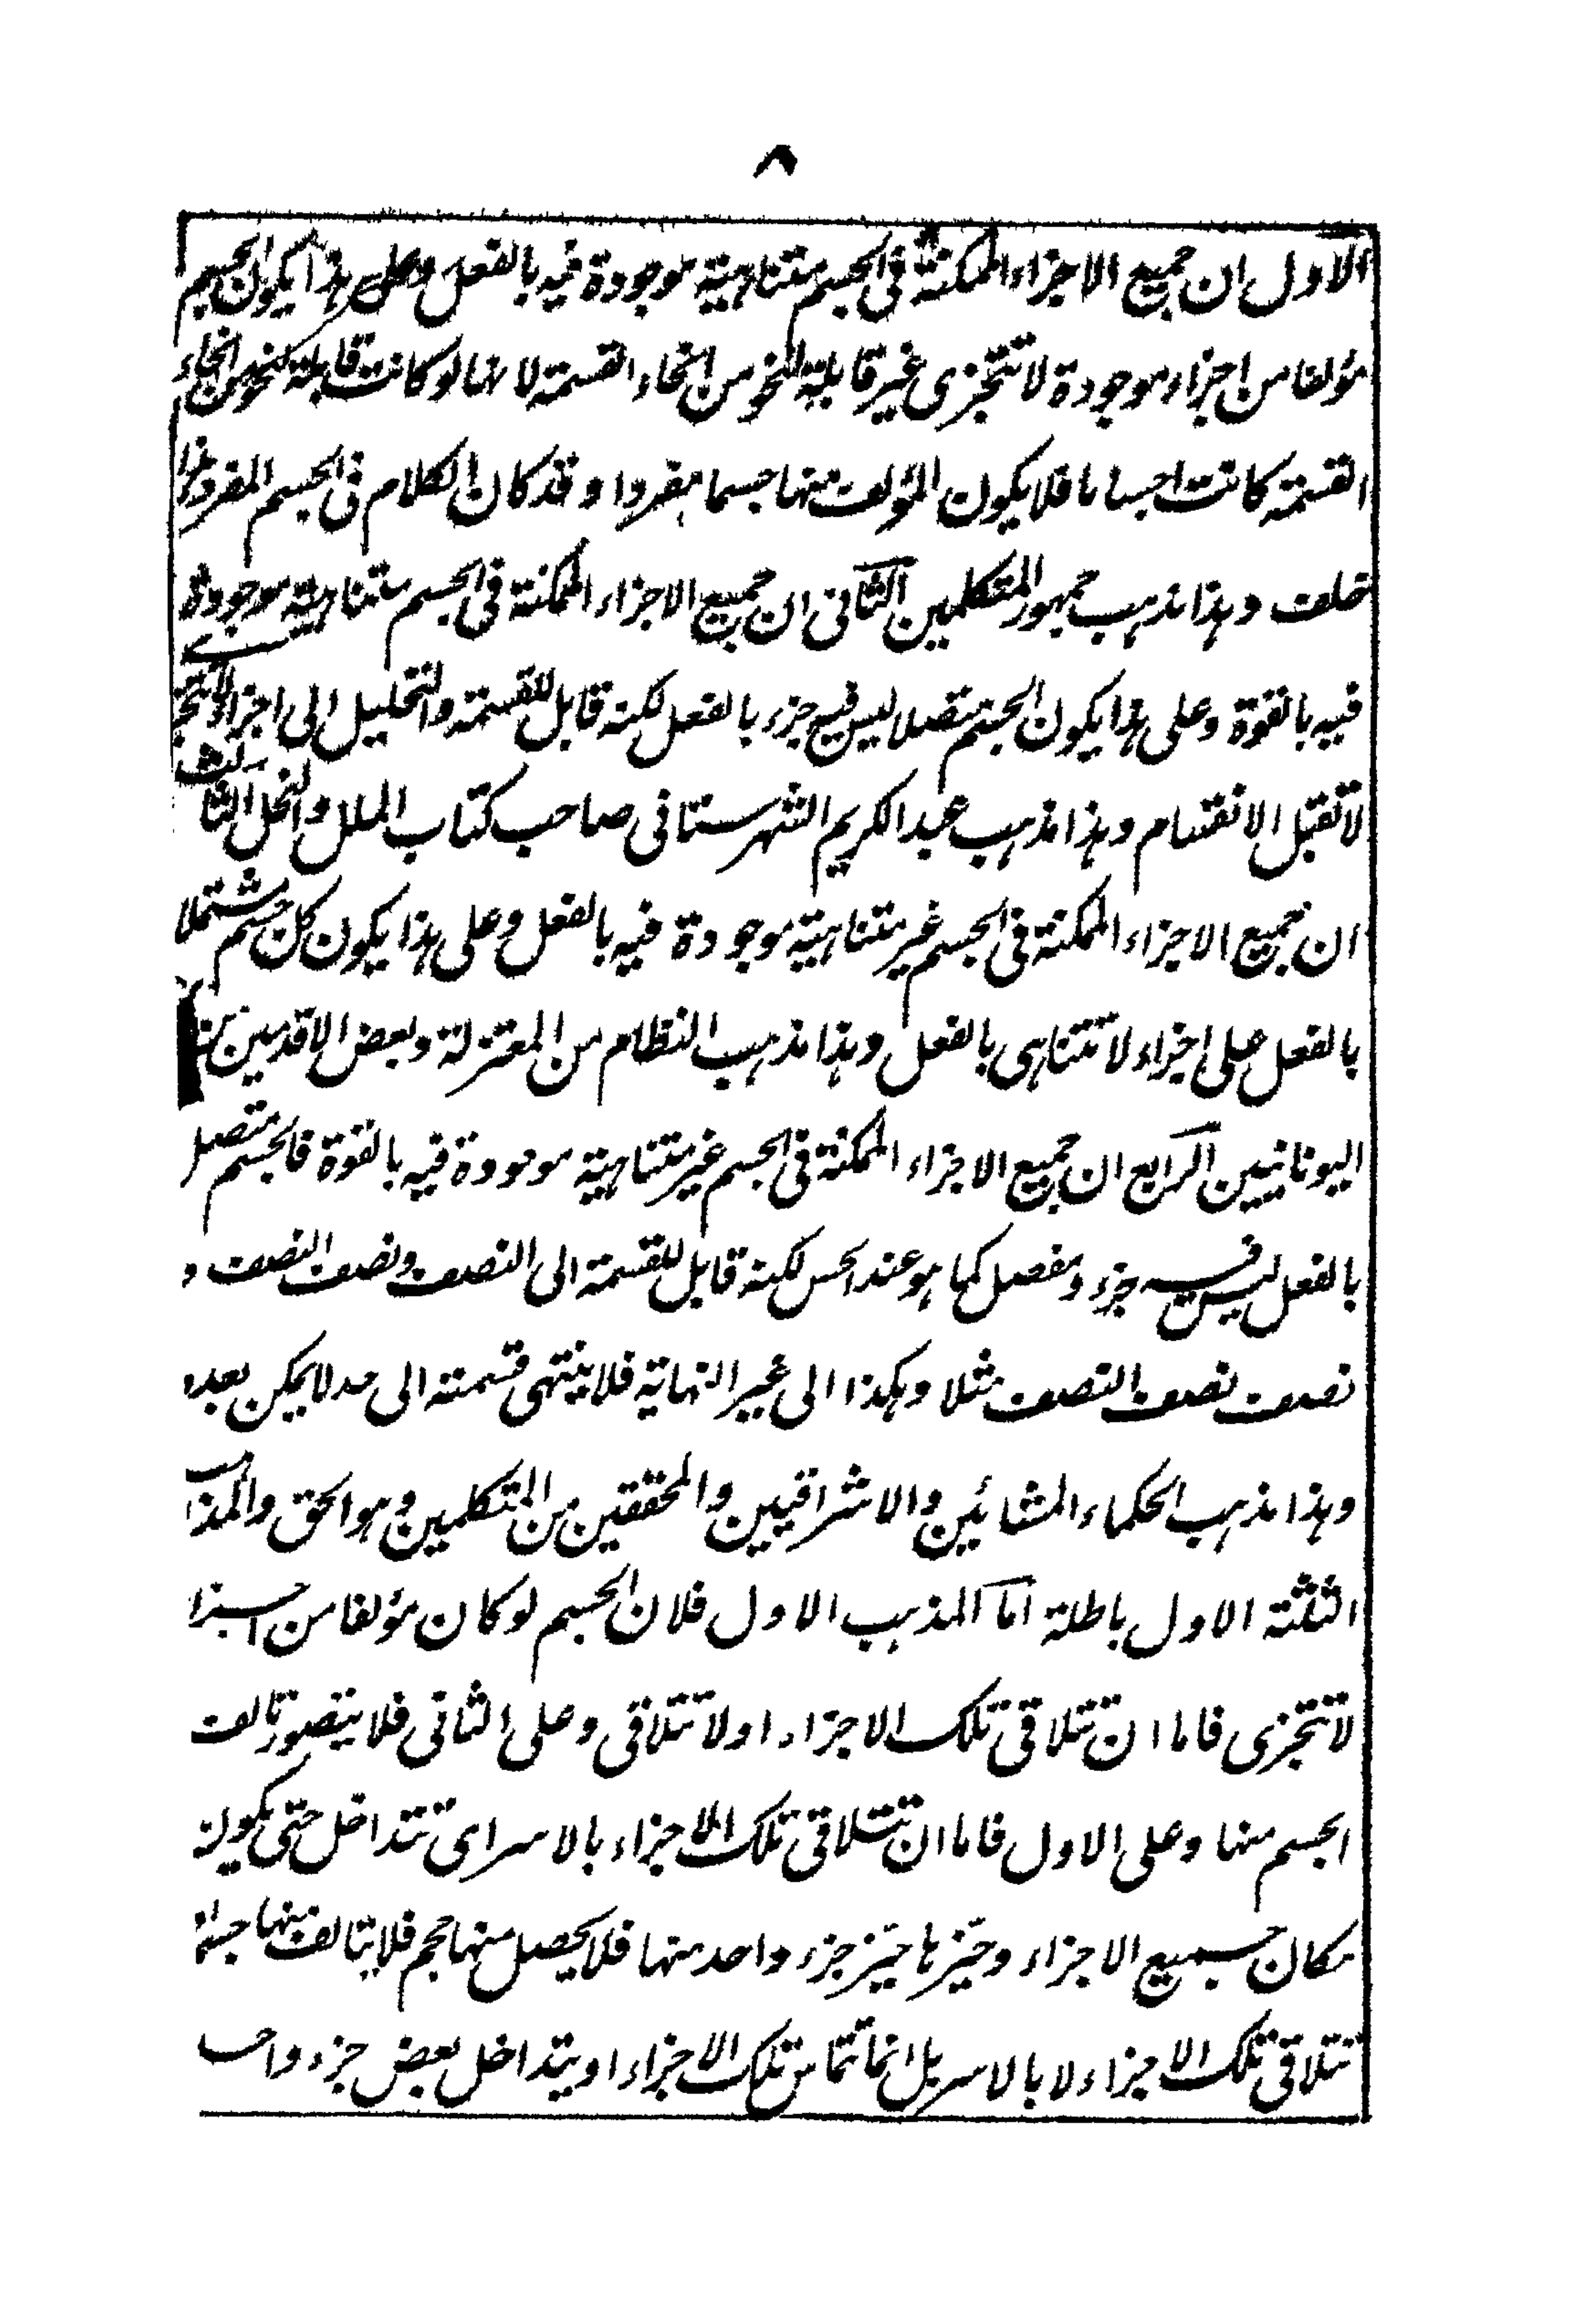 ٨
الاول ان جميع الاجزاء الممكنة فى الجسم متناهية موجودة فيه بالفعل وعلى هذا يكون الجسم
مؤلفا من اجزاء موجودة لا تتجزى غير قابلة لنحو من انحاء القسمة لانها لو كانت قابلة لنحو من انحاء
القسمة كانت اجساما فلا يكون المؤلف منها جسما مفردا وقد كان الكلام فى الجسم المفرد هذا
خلف وهذا مذهب جمهور المتكلمين الثانى ان جميع الاجزاء الممكنة فى الجسم متناهية موجودة
فيه بالقوة وعلى هذا يكون الجسم متصلا ليس فيه جزء بالفعل لكنه قابل للقسمة والتحليل الى اجزاء لا تتجزى
لا تقبل الانقسام وهذا مذهب عبد الكريم الشهرستانى صاحب كتاب الملل والنحل الثالث
ان جميع الاجزاء الممكنة فى الجسم غير متناهية موجودة فيه بالفعل وعلى هذا يكون كل جسم مشتملا
بالفعل على اجزاء لا تتناهى بالفعل وهذا مذهب النظام من المعتزلة وبعض الاقدمين من
اليونانيين الرابع ان جميع الاجزاء الممكنة فى الجسم غير متناهية موجودة فيه بالقوة فالجسم متصل
بالفعل ليس فيه جزء ومفصل كما هو عند الحس لكنه قابل للقسمة الى النصف ونصف النصف و
نصف نصف النصف مثلا وهكذا الى غير النهاية فلا ينتهى قسمته الى حد لا يمكن بعده
وهذا مذهب الحكماء المشائين والاشراقيين والمحققين من المتكلمين وهو الحق والمذاهب
الثلثة الاول باطلة اما المذهب الاول فلان الجسم لو كان مؤلفا من اجزا
لا تتجزى فاما ان تتلاقى تلك الاجزاء او لا تتلاقى وعلى الثانى فلا يتصور تالف
الجسم منها وعلى الاول فاما ان تتلاقى تلك الاجزاء بالاسر اى تتداخل حتى يكون
مكان جميع الاجزاء وحيزها حيز جزء واحد منها فلا يحصل منها حجم فلا يتالف منها جسم
تتلاقى تلك الاجزاء لا بالاسر بل انما تتماس تلك الاجزاء او يتداخل بعض جزء واحد